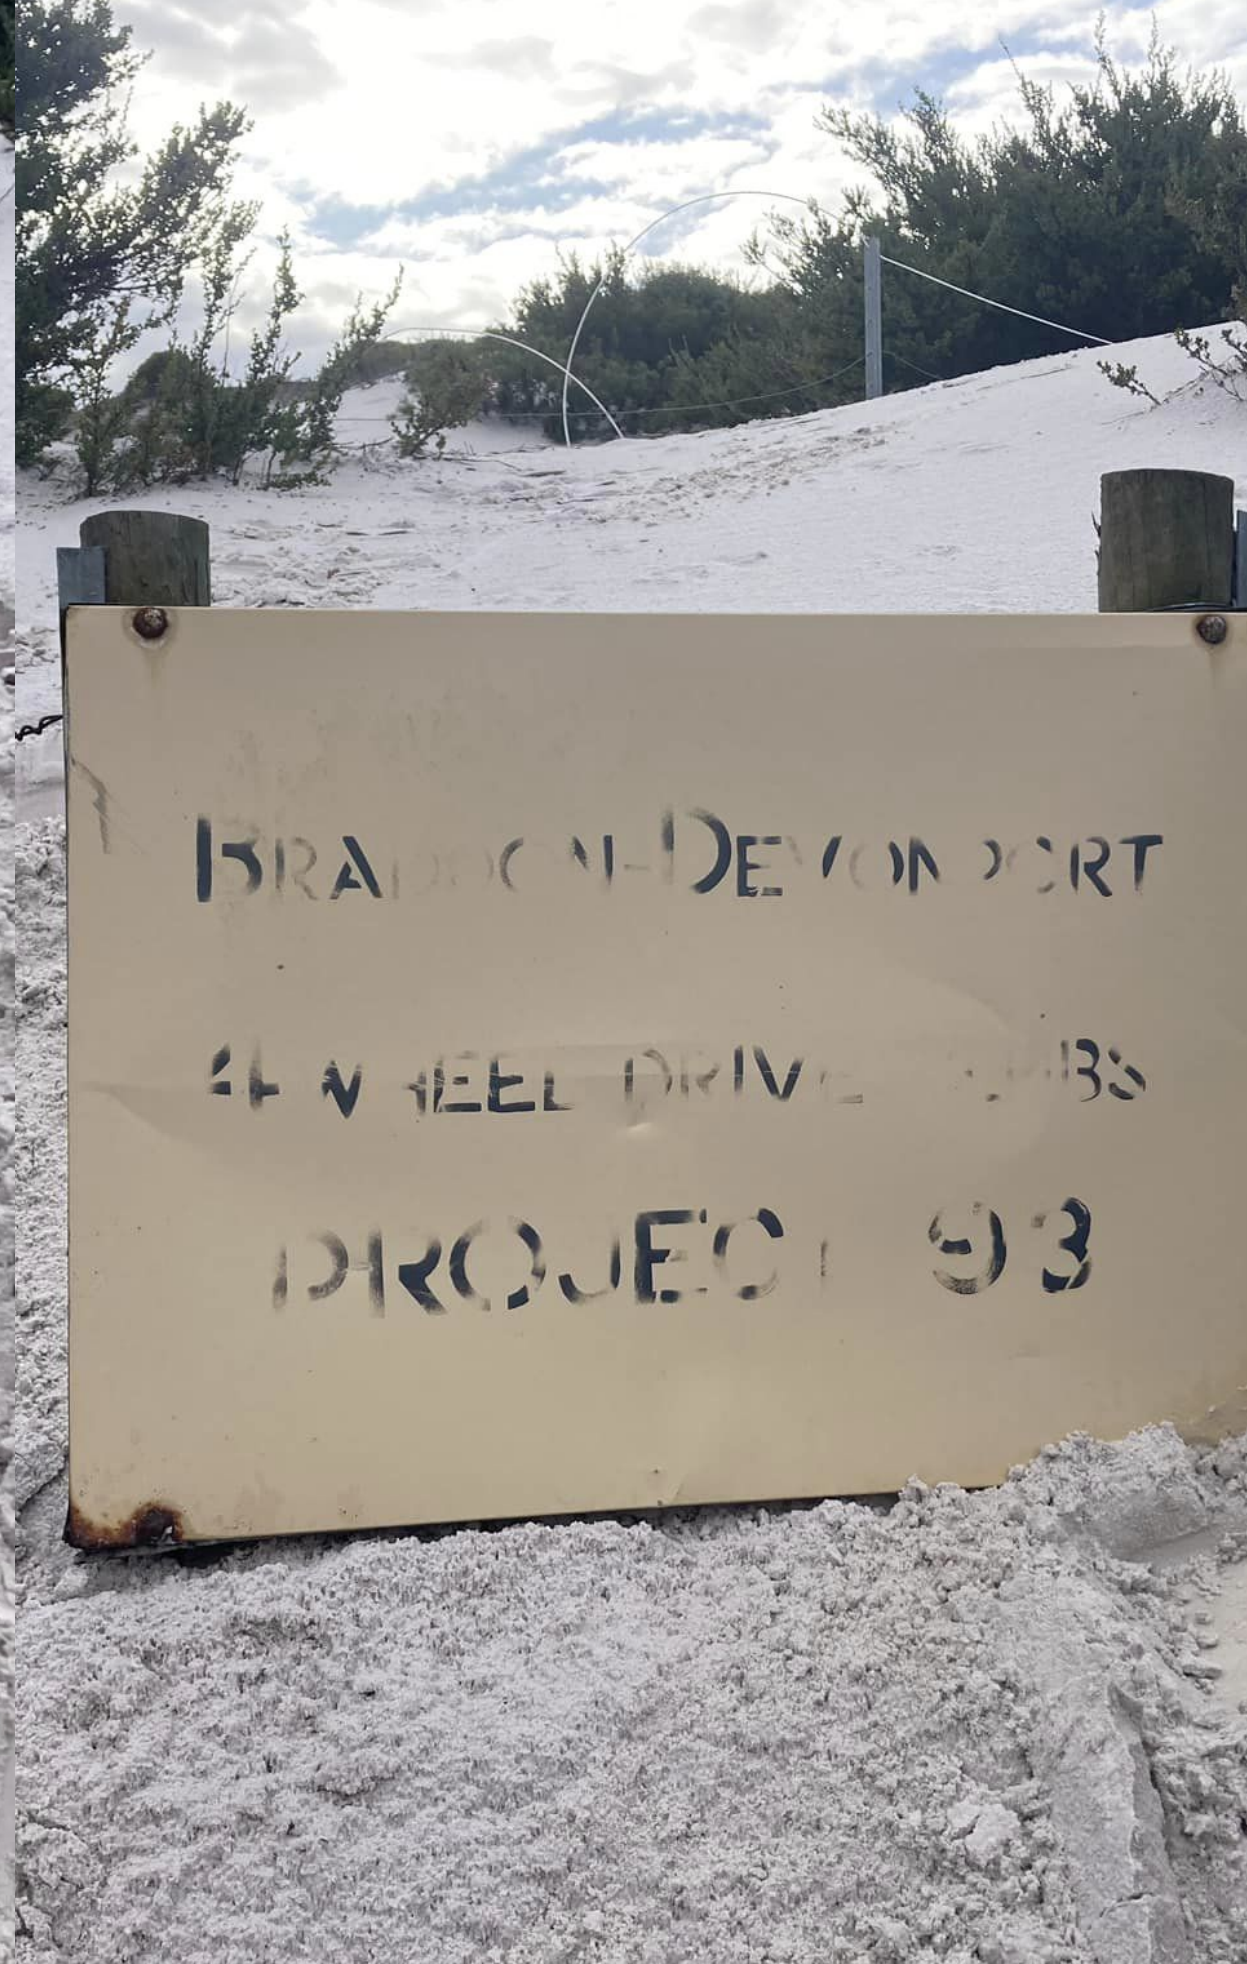 BRADDON-DEVONPORT
4 WHEEL DRIVE CLUBS
PROJECT 93